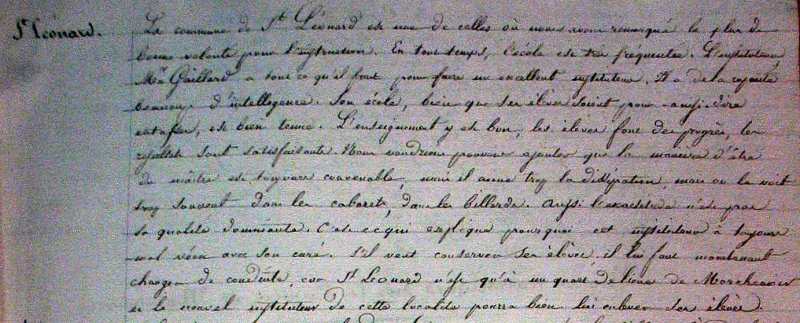 St Léonard.
La commune de St Léonard est une de celles où nous avons remarqué le plus de
bonne volonté pour l'instruction. En tout temps, l'école est très fréquentée. L'instituteur,
Mr Gaillard a tout ce qu'il faut pour faire un excellent instituteur. Il a de la capacité
beaucoup d'intelligence. Son école, bien que ses élèves soient pour ainsi dire
entassés, est bien tenue. L'enseignement y est bon, les élèves font des progrès, les
résultats sont satisfaisants. Nous voudrions pouvoir ajouter que la manière d'être
du maître est toujours convenable, mais il aime trop la dissipation, mais on le voit
trop souvent dans les cabarets, dans les billards. Aussi l'exactitude n'est pas
sa qualité dominante. C'est ce qui explique pourquoi cet instituteur a toujours
mal vécu avec son curé. S'il veut conserver ses élèves, il lui faut maintenant
changer de conduite, car St Léonard n'est qu'à un quart de lieue de Marchenoir
et le nouvel instituteur de cette localité pourra bien lui enlever ses élèves